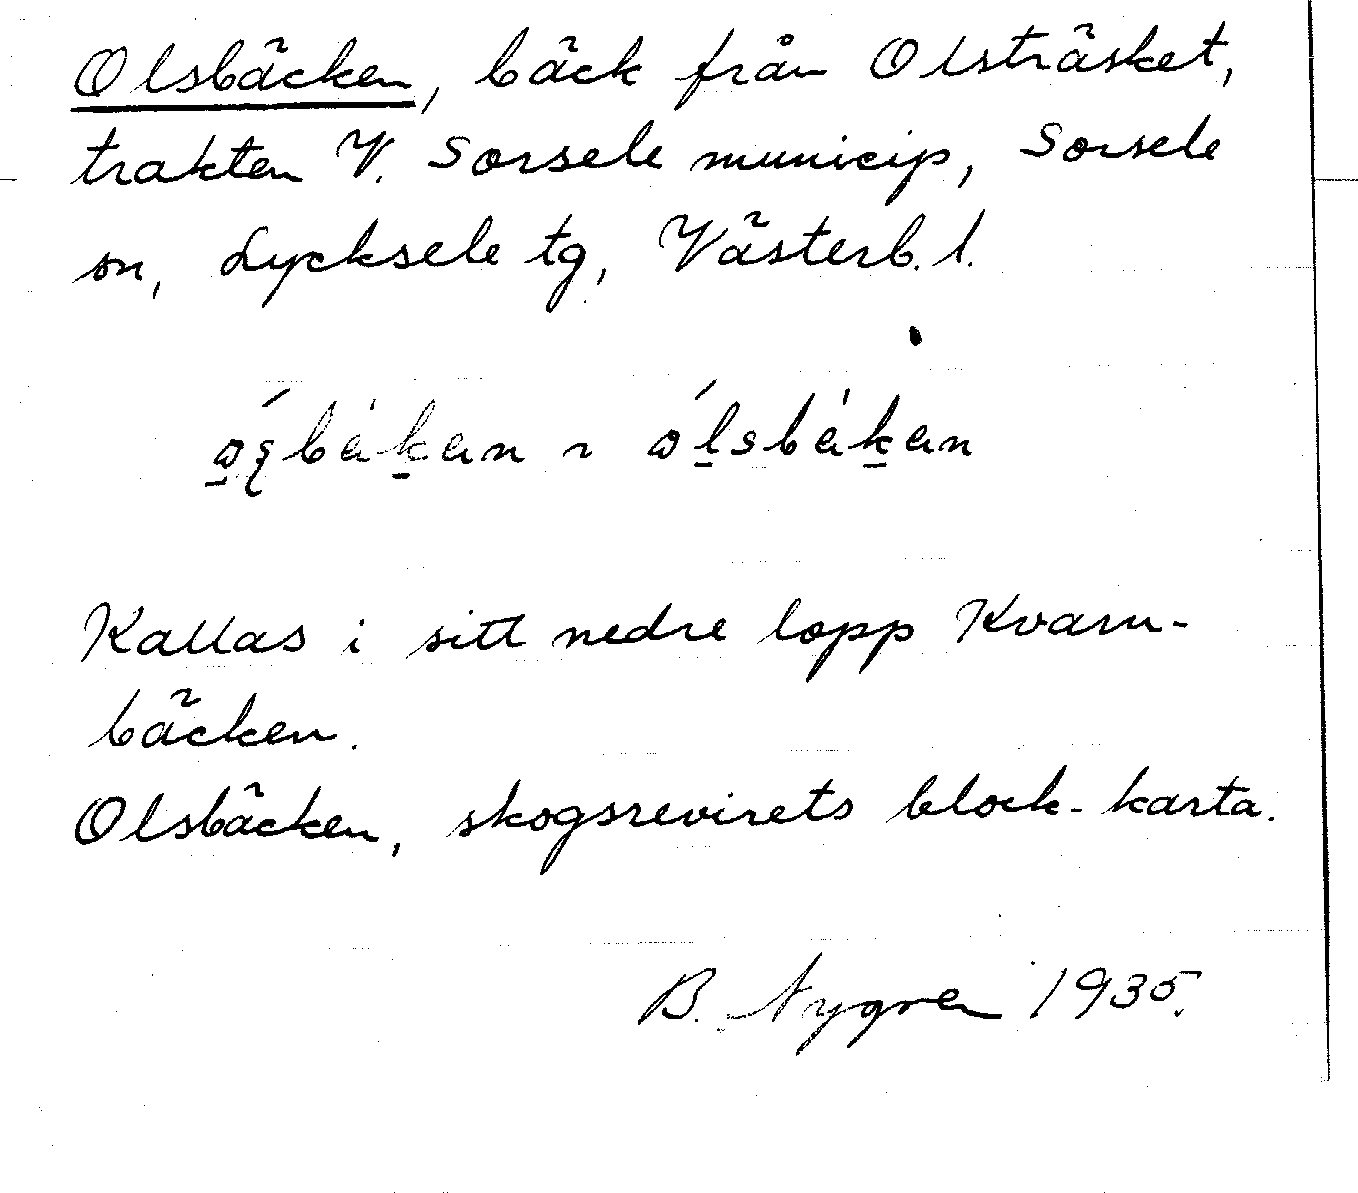 Olsbäcken, bäck från Olsträsket,
trakten V. Sorsele municip, Sorsele
sn, Lycksele tg, Västerb. l.
Kallas i sitt nedre lopp Kvarn-
bäcken.
Olsbäcken, skogsrevirets block-karta.
B. Nygren 1935.